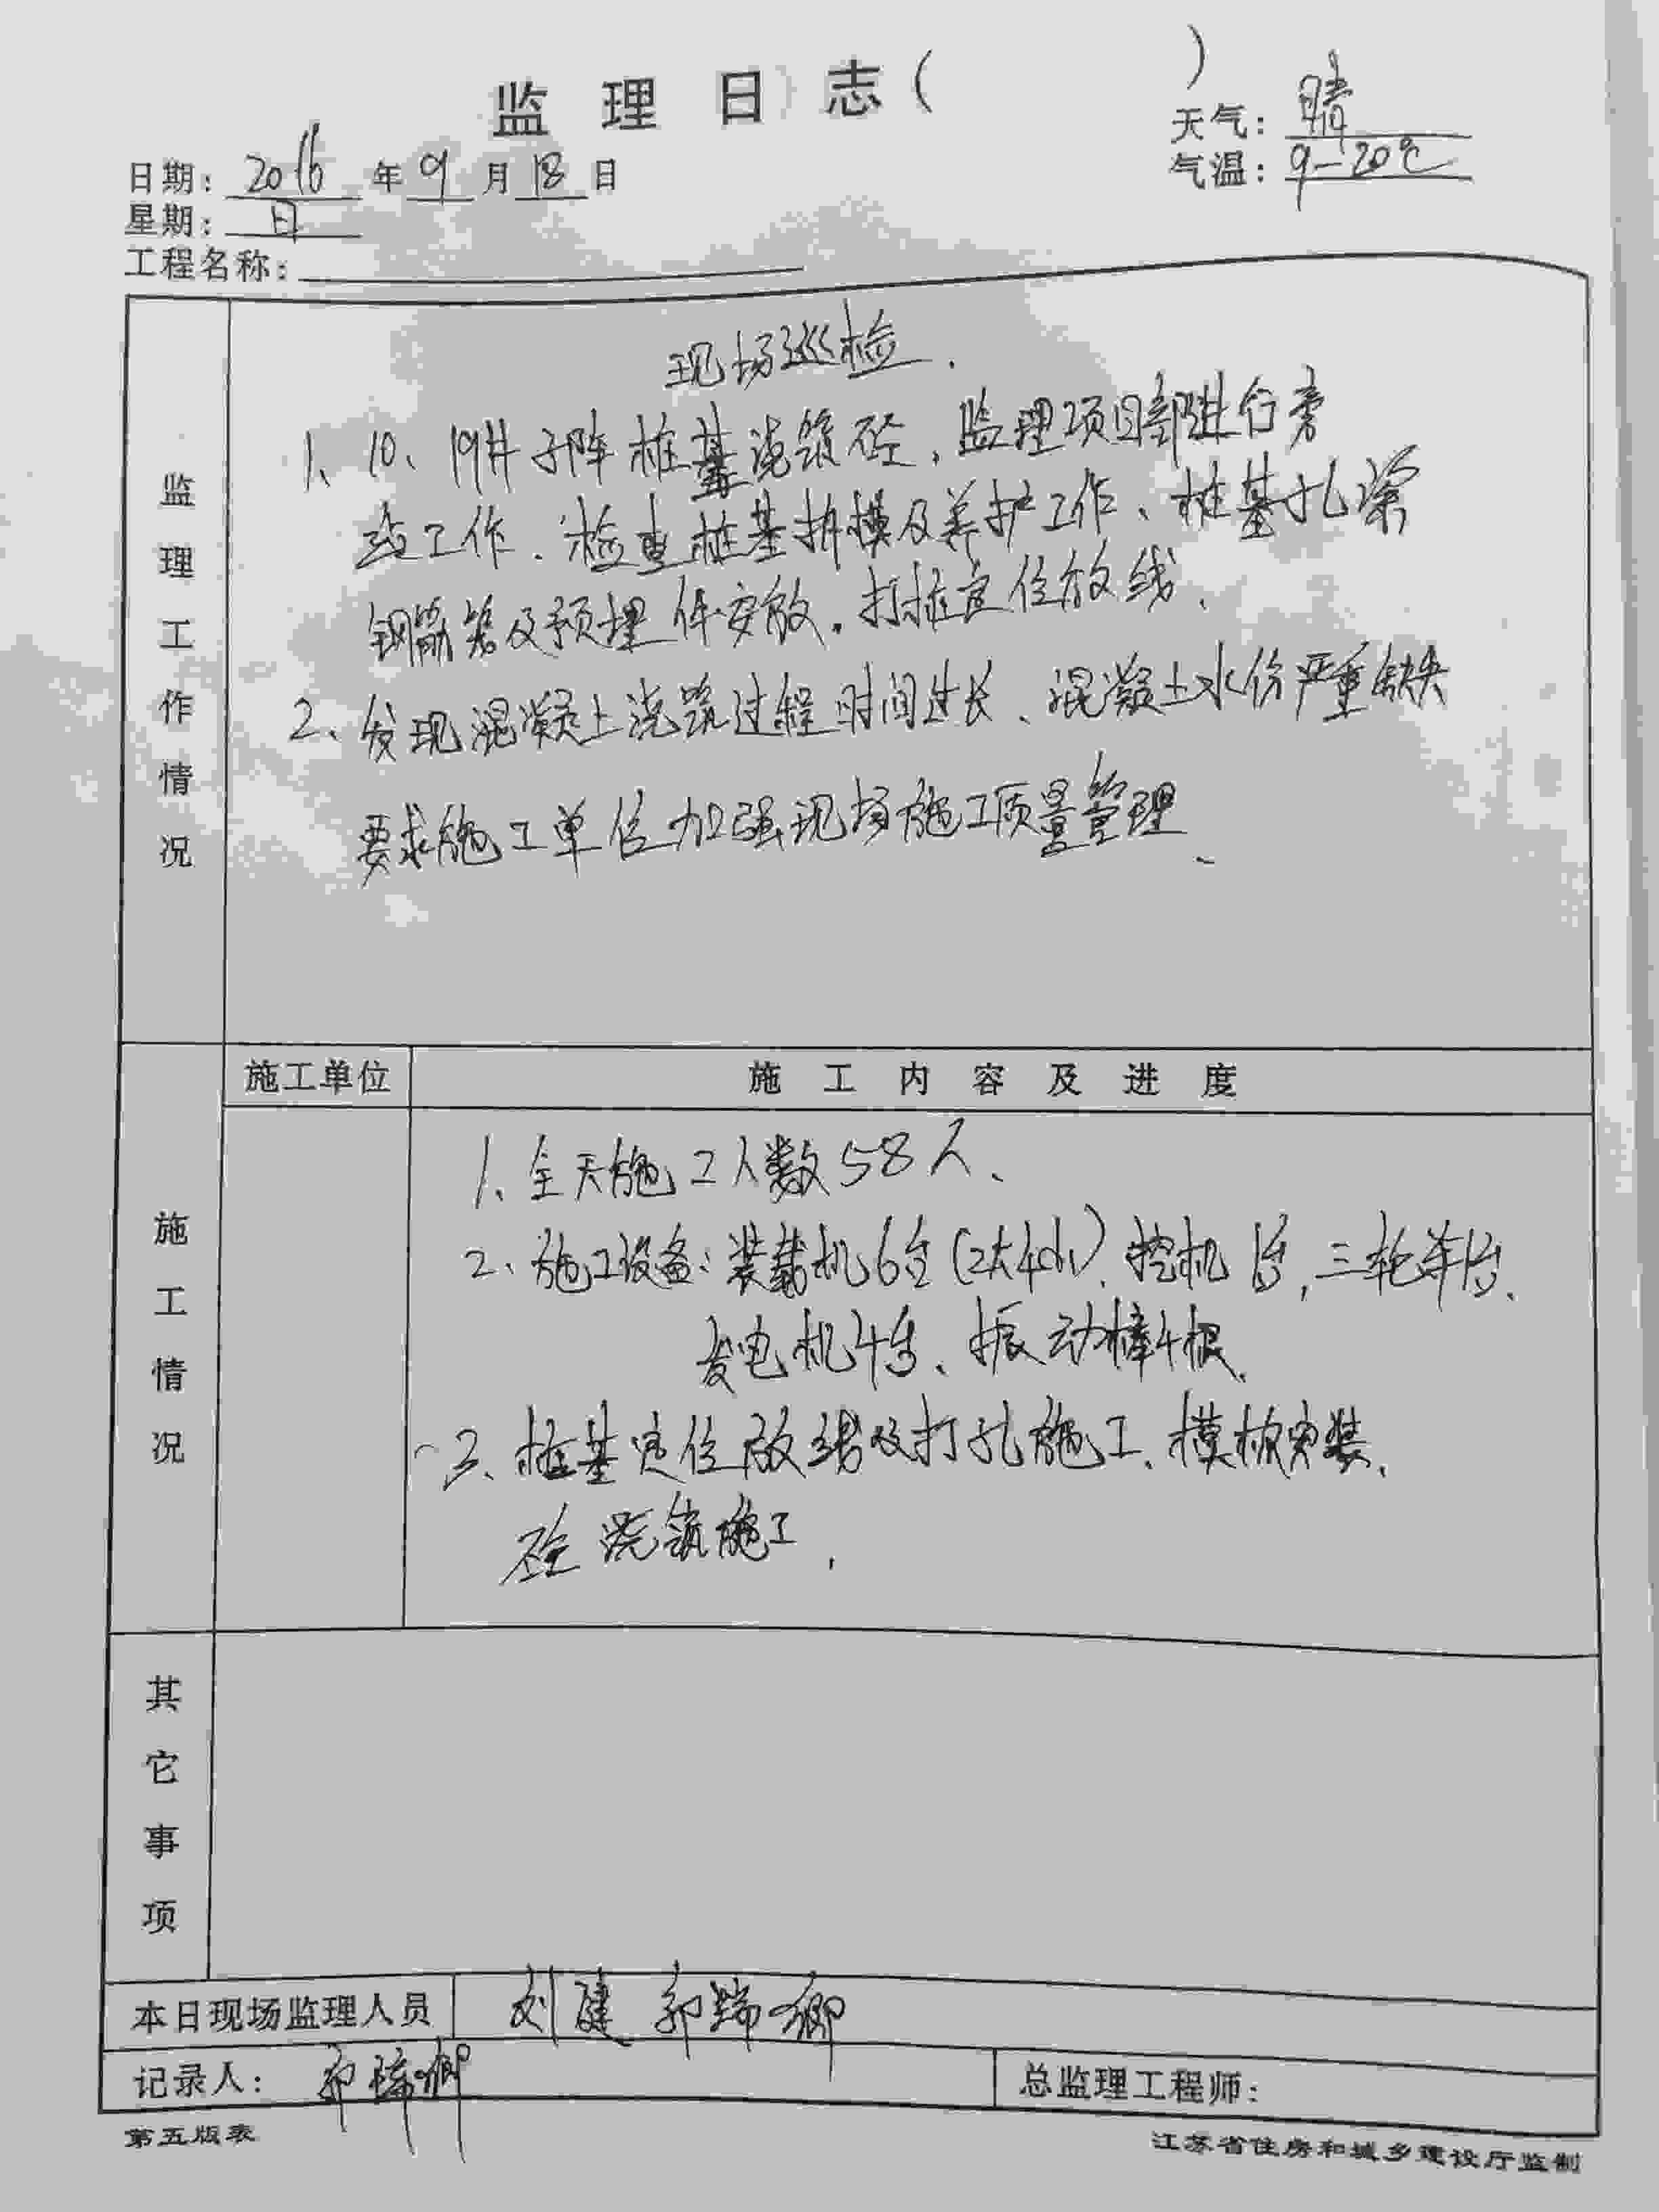 监理日志(          )
天气: 晴
日期: 2016 年 9 月 18 日
气温: 9-20℃
星期: 日
工程名称:
监理工作情况
现场巡检.
1、10、19#子阵桩基浇筑砼、监理项目部进行旁
站工作、检查桩基拆模及养护工作、桩基孔深
钢筋笼及预埋件安放. 打桩定位放线、
2、发现混凝土浇筑过程时间过长、混凝土水份严重缺失
要求施工单位加强现场施工质量管理、
施工单位 施工内容及进度
施工情况
1、全天施工人数58人、
2、施工设备: 装载机6台(2大4小)、挖机1台, 三轮车1台、
发电机4台、振动棒4根、
3、桩基定位放线及打孔施工、模板安装、
砼浇筑施工.
其它事项
本日现场监理人员 刘建 郭瑞卿
记录人: 郭瑞卿 总监理工程师:
第五版表 江苏省住房和城乡建设厅监制